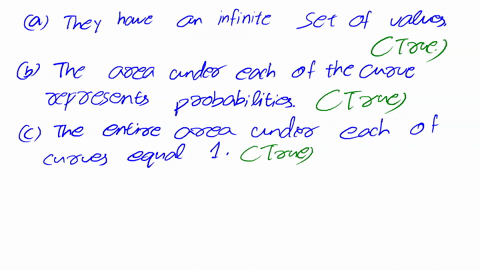 (a) They have an infinite set of values
(True)
(b) The area under each of the curve
represents probabilities. (True)
(c) The entire area under each of
curves equal 1. (True)